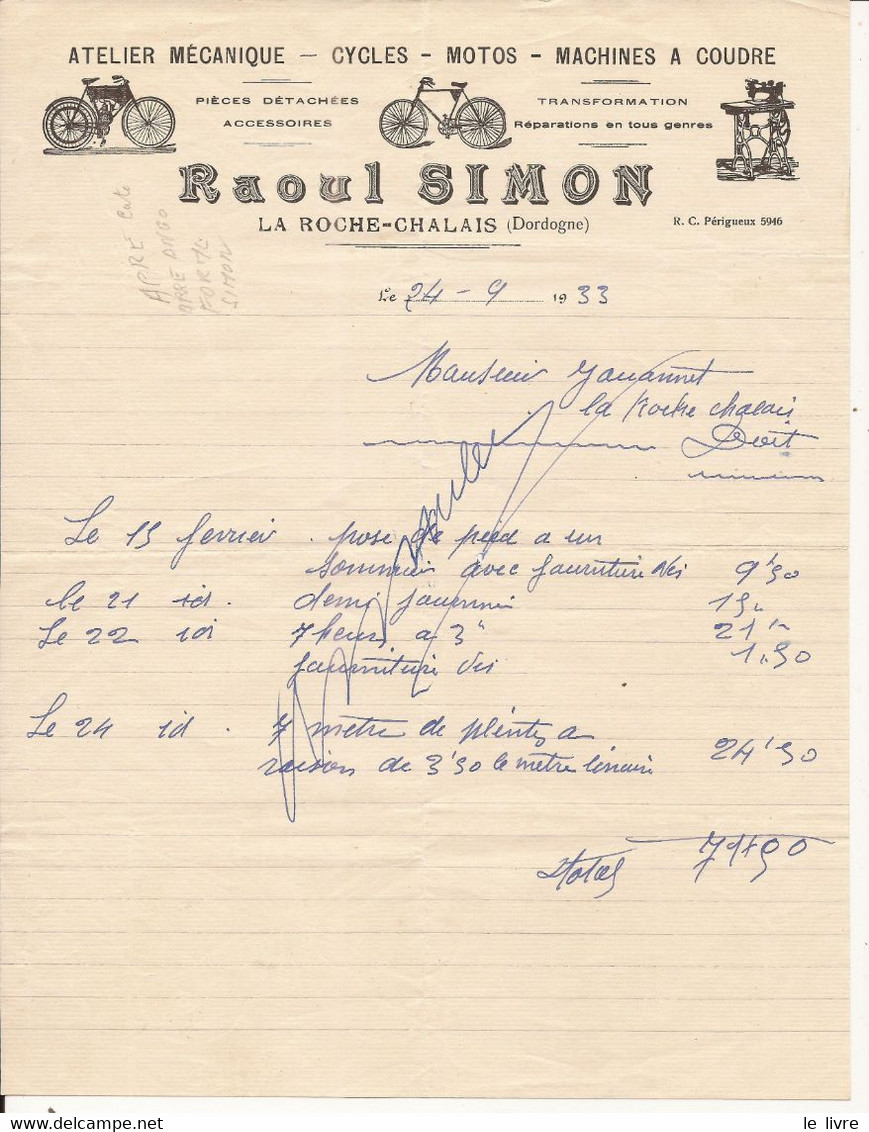 ATELIER MÉCANIQUE – CYCLES - MOTOS - MACHINES A COUDRE
PIÈCES DÉTACHÉES
ACCESSOIRES
TRANSFORMATION
Réparations en tous genres
Raoul SIMON
LA ROCHE-CHALAIS (Dordogne)
R. C. Périgueux 5946
SIMON
Le 24 - 9 1933
Monsieur
la Roche chalais
Doit
Le 15 fevrier pose de pied a un
sommier avec fourniture Vis 9'50
le 21 id. demi journée 15
Le 22 id 7 heurs a 3" 21
fourniture Vis 1.50
Le 24 id. 7 metre de plintes a
raison de 3'50 le metre linaire 24'50
Total 71f50
Delcampe.net
le livre